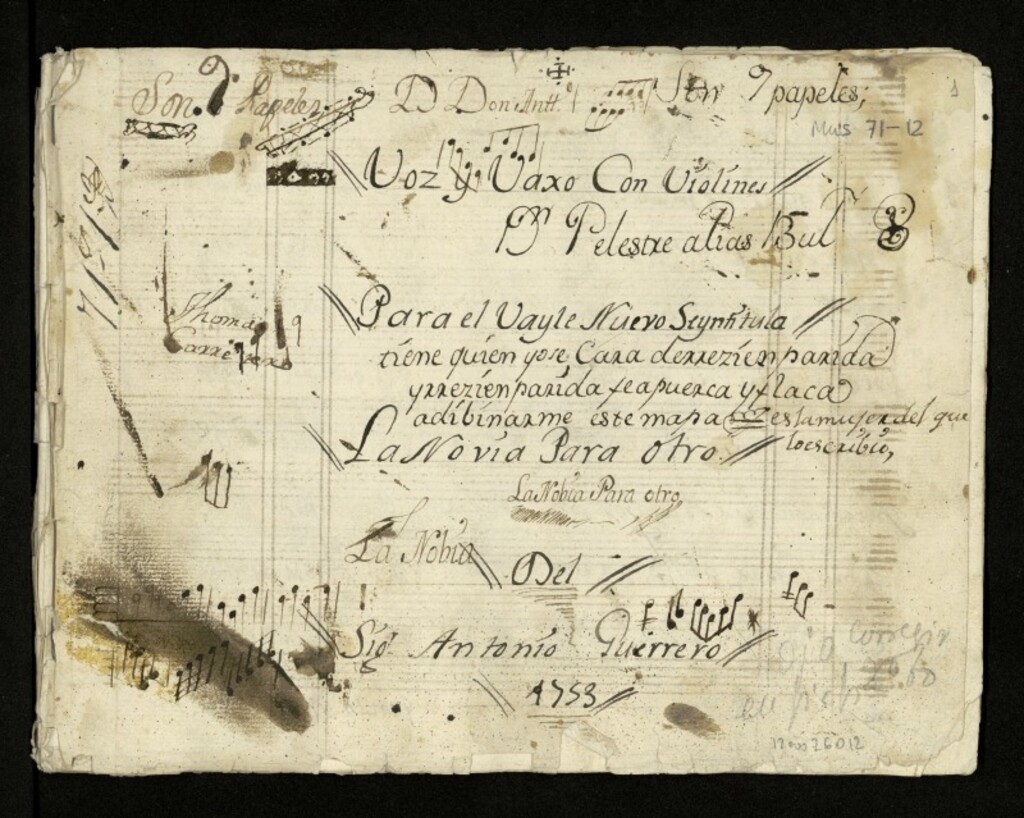 Son 9 Papeles
D Don Antt.
Son 9 papeles;
1
Mus 71-12
Voz y Vaxo Con Violines
Pelestre alias Bul
Thomas
Carretero
Para el Vayle Nuevo Seyntitula
tiene quien yose Cara derrezien parida
yrrezien parida fea puerca y flaca
adibinarme este mapa es la mujer del que
loescribio,
La Novia Para otro
La Nobia Para otro
La Nobia
Del
Sigr Antonio Guerrero
1753